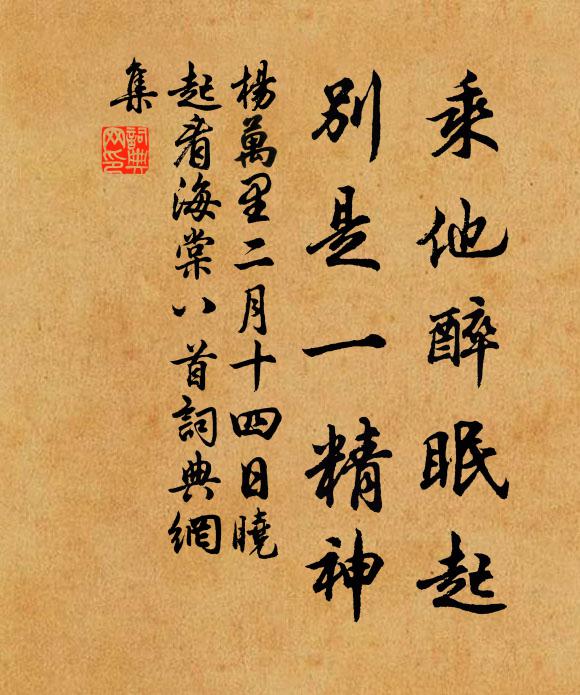 乘他醉眠起
別是一精神
楊萬里二月十四日曉
起看海棠八首詞典網
集
詞典网印